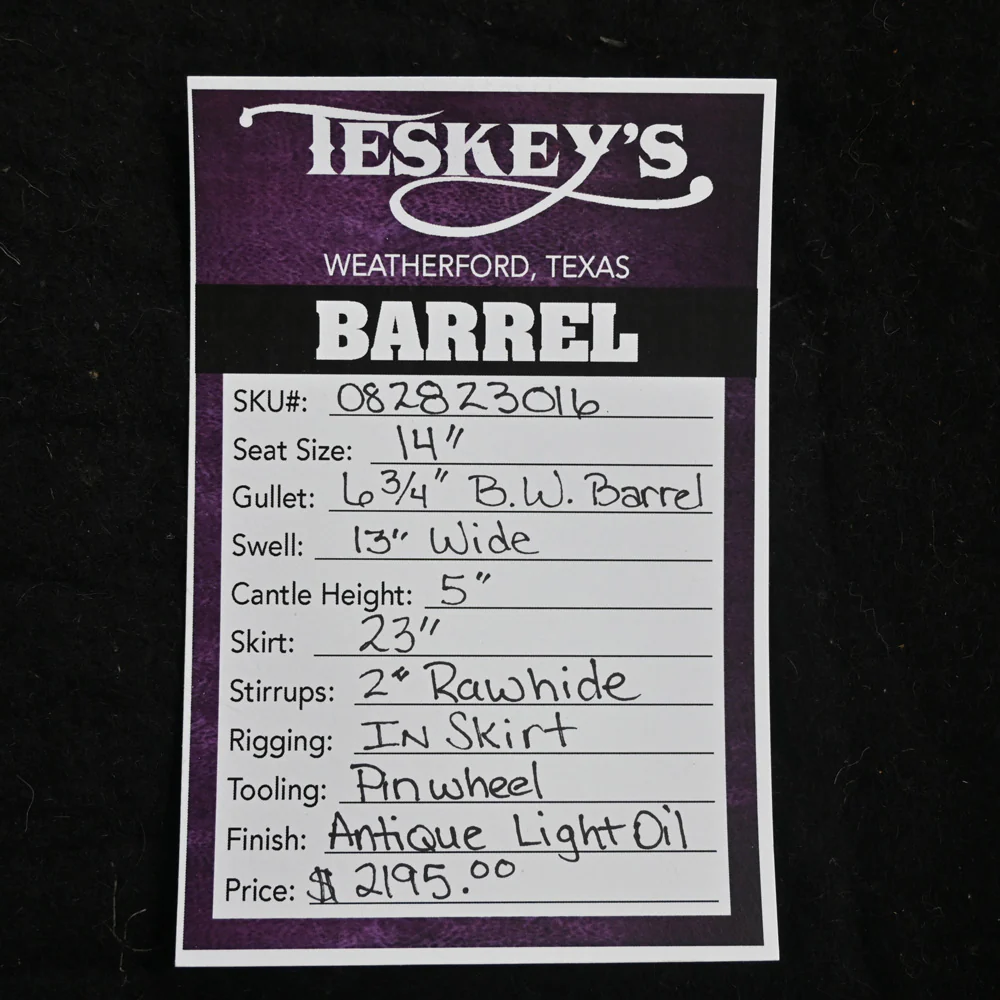 TESKEY'S
WEATHERFORD, TEXAS
BARREL
SKU#: 082823016
Seat Size: 14"
Gullet: 6 3/4" B.W. Barrel
Swell: 13" Wide
Cantle Height: 5"
Skirt: 23"
Stirrups: 2" Rawhide
Rigging: IN Skirt
Tooling: Pinwheel
Finish: Antique Light Oil
Price: $ 2195.00